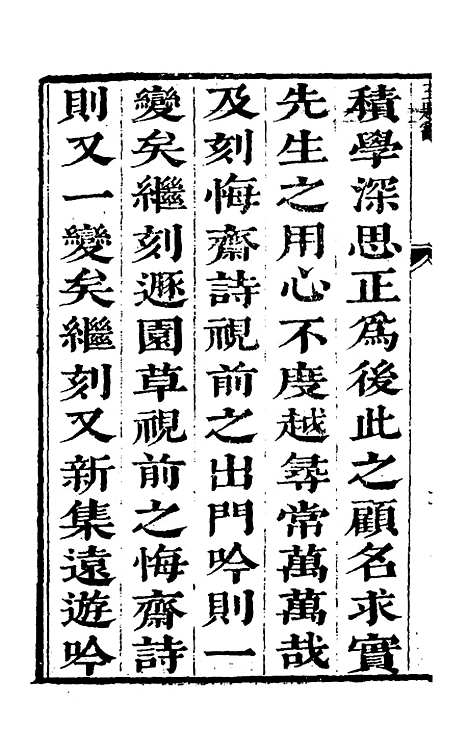 積學深思正爲後此之顧名求實
先生之用心不度越尋常萬萬哉
及刻悔齋詩視前之出門吟則一
變矣繼刻遯園草視前之悔齋詩
則又一變矣繼刻又新集遠遊吟